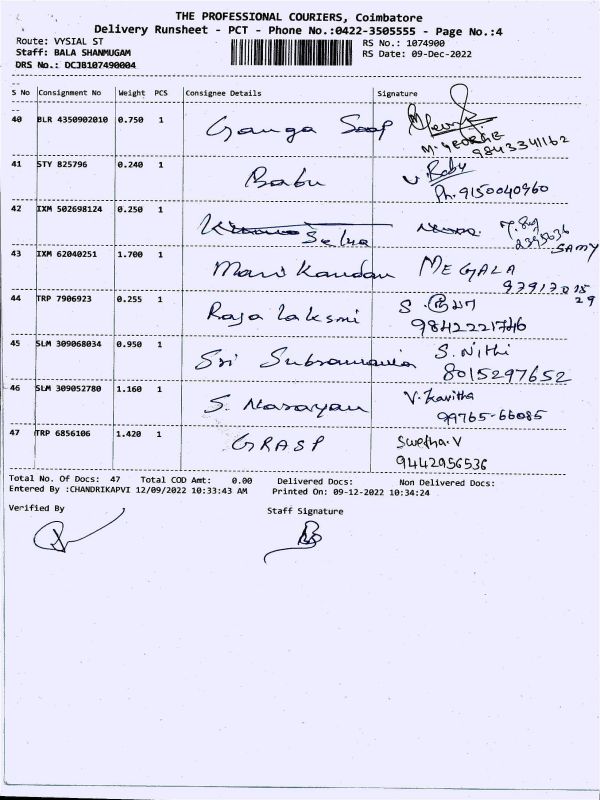 THE PROFESSIONAL COURIERS, Coimbatore
Delivery Runsheet - PCT - Phone No.:0422-3505555 - Page No.:4
Route: VYSIAL ST RS No.: 1074900
Staff: BALA SHANMUGAM RS Date: 09-Dec-2022
DRS No.: DCJB107490004
S No Consignment No Weight PCS Consignee Details Signature
40 BLR 4350902010 0.750 1 Ganga Soap
M. GEORGE
9843341162
41 STY 825796 0.240 1 Babu Baby
Ph. 9150040960
42 IXM 502698124 0.250 1 Selva
2395636
43 IXM 62040251 1.700 1 Mani Kandan MEGALA SAMY
44 TRP 7906923 0.255 1 Raja Laksmi S.
9842221746
45 SLM 309068034 0.950 1 Sri Subramania S. Nithi
8015297652
46 SLM 309052780 1.160 1 S. Narayan V. Kavitha
99765-66085
47 TRP 6856106 1.420 1 GRASP Swetha.V
9442956536
Total No. Of Docs: 47 Total COD Amt: 0.00 Delivered Docs: Non Delivered Docs:
Entered By :CHANDRIKAPVI 12/09/2022 10:33:43 AM Printed On: 09-12-2022 10:34:24
Verified By Staff Signature